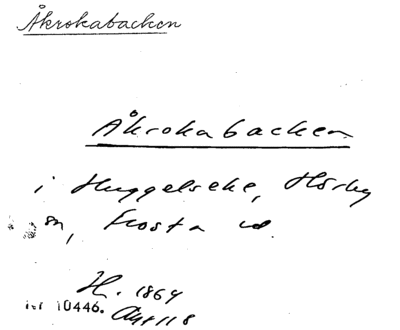 Åkrokabacken
Åkrokabacken
i Huggelseke, Hörby
sn, Frosta hd.
H. 1864
Nr 10446.